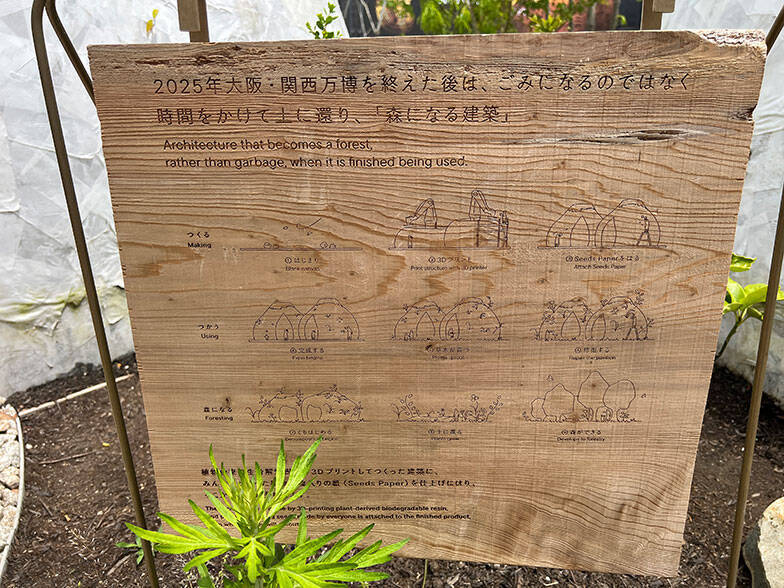 2025年大阪・関西万博を終えた後は、ごみになるのではなく
時間をかけて土に還り、「森になる建築」
Architecture that becomes a forest,
rather than garbage, when it is finished being used.
つくる
Making
①はじまり
Blank canvas
②3Dプリント
Print structure with 3D printer
③Seeds Paperをはる
Attach Seeds Paper
つかう
Using
④完成する
Expo begins
⑤草木が育つ
Plants sprout
⑥修復する
Repair the pavilion
森になる
Foresting
⑦くちはじめる
⑧土に還る
⑨森ができる
Develops to forestry
3Dプリントしてつくった建築に、
の紙(Seeds Paper)を仕上げにはり、
by 3D-printing plant-derived biodegradable resin,
by everyone is attached to the finished product,